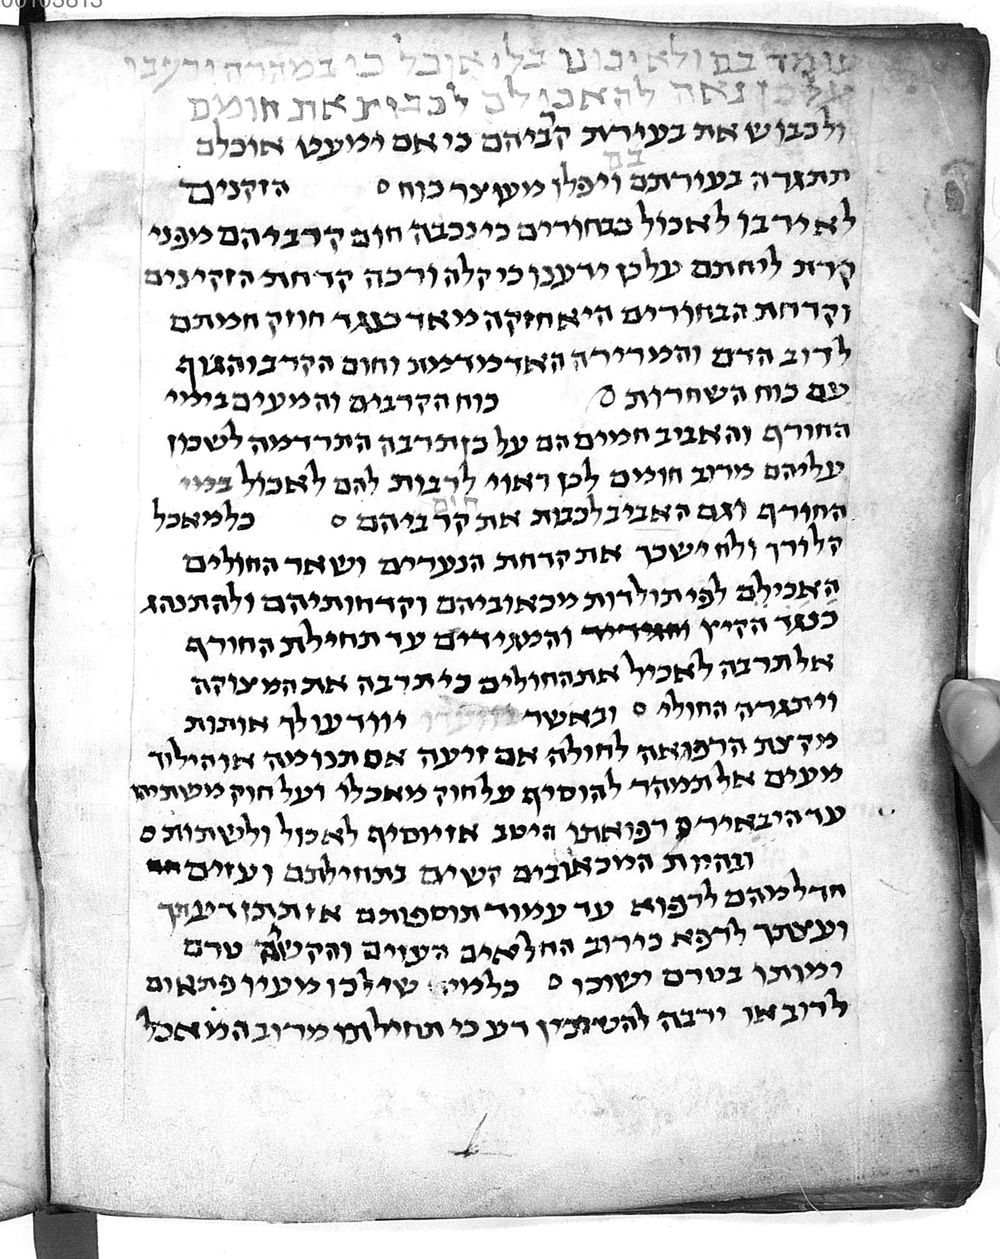 עומד בם ולא יכונו בלי אוכל כי במהרה ירעבו
על כן נאה להאכילם לכבות את חומם
ולכבוש את בעירת קרביהם כי אם ימעט אוכלם
תתגרה בעירתם ויפלו מעוצר כוח הזקנים
בם
לא ירבו לאכול כבחורים כי נכבה חום קרביהם מפני
קרת ליחתם על כן ירעננו כי קלה ורכה קדחת הזקינים
וקדחת הבחורים היא חזקה מאד כנגד חוזק חמתם
לרוב הדם והמרירה האדמדמת וחום הקרב והגוף
עם כוח השחרות כוח הקרבים והמעים בימי
החורף והאביב חמים הם על כן תרבה התרדמה לשכון
עליהם מרוב חומים לכן ראוי לרבות להם לאכול בימי
החורף וגם האביב לכבות את קרביהם כל מאכל
חום
קלורך ולח ישכך את קדחת הנערים ושאר החולים
האכילם לפי תולדות מכאוביהם וקדחותיהם ולהתנהג
כנגד הקיץ והמגידים עד תחילת החורף
אל תרבה לאכיל את החולים כי תרבה את המצוקה
ויתגרה החולי ובאשר יוורע לך אותות
מקצת הרפואה לחולה אם זיעה אם תנומה או הילוך
מעים אל תמהר להוסיף על חוק מאכלו ועל חוק משתיהו
עד היבאיר רפואתו היטב אז יוסיף לאכול ולשתות
ובהיות המכאובים קשים בתחילתם ועזים
חדל מהם לרפוא עד עמוד תוספותם אז תתן דיעתך
ועצתך לרפא כי רוב החלאים העזים והקשים טרם
ימותו בטרם ישוכו כל מי שילכו מעיו פתאום
לרוב או ירבה להשתין דע כי תחילתו מרוב המאכל